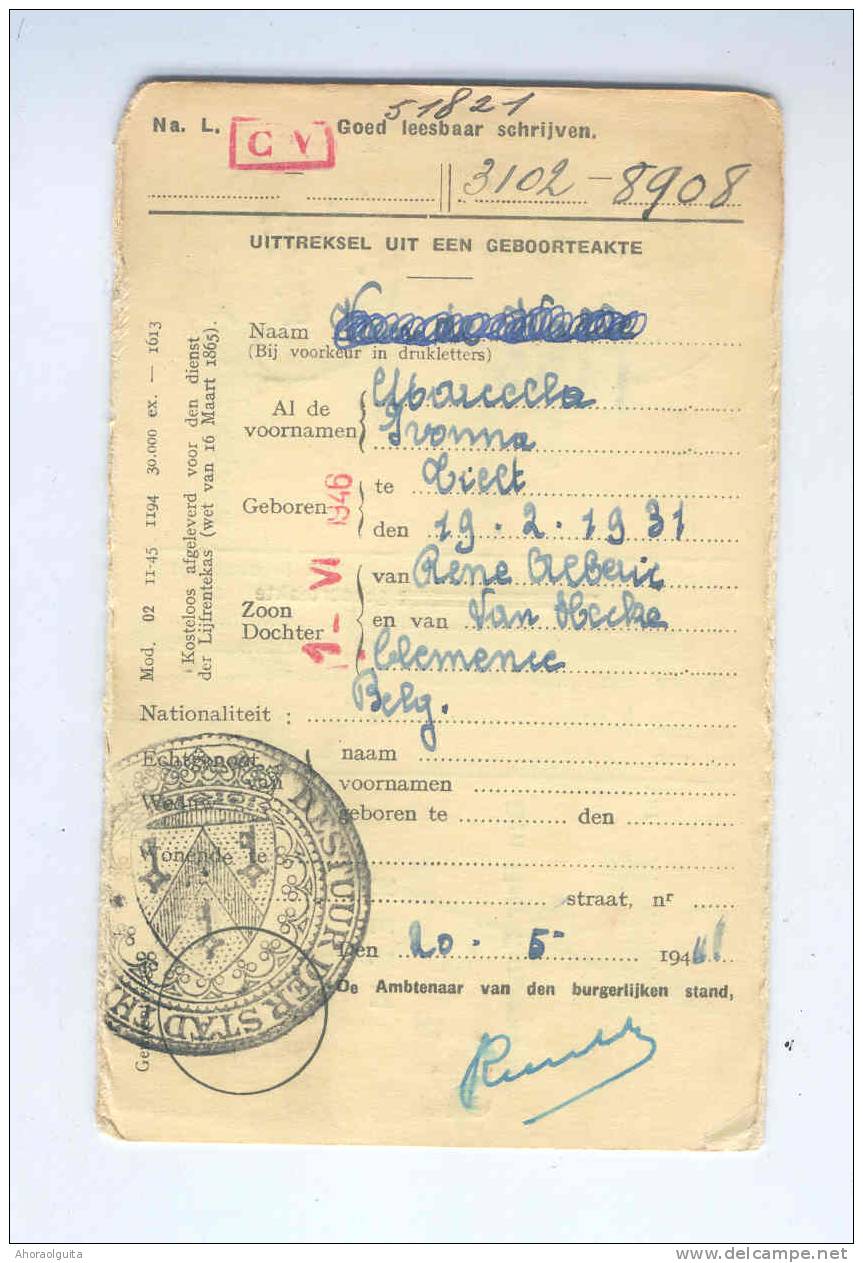 51821
Na. L. C V Goed leesbaar schrijven.
3102 - 8908
UITTREKSEL UIT EEN GEBOORTEAKTE
Naam
(Bij voorkeur in drukletters)
Al de voornamen
Marcella
Ivonna
Geboren
te Tielt
den 19.2.1931
1 - VI 1946
Zoon
Dochter
van Rene Alberic
en van Van Hecke
Clemence
Nationaliteit : Belg.
Echtgenoot
van
naam
voornamen
geboren te den
Wonende te
straat, nr
Den 20 - 5 - 194
De Ambtenaar van den burgerlijken stand,
BESTUUR DER STAD
Mod. 02 11-45 1194 30.000 ex. — 1613
Kosteloos afgeleverd voor den dienst
der Lijfrentekas (wet van 16 Maart 1865).
Ahoraolguita
www.delcampe.net